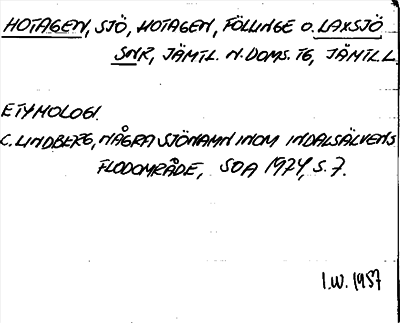 HOTAGEN, SJÖ, HOTAGEN, FÖLLINGE O. LAXSJÖ
SNR, JÄMTL. N. DOMS. TG, JÄMTL L
ETYMOLOGI.
C. LINDBERG, NÅGRA SJÖNAMN INOM INDALSÄLVENS
FLODOMRÅDE, SOA 1974, S. 7.
I.W. 1987